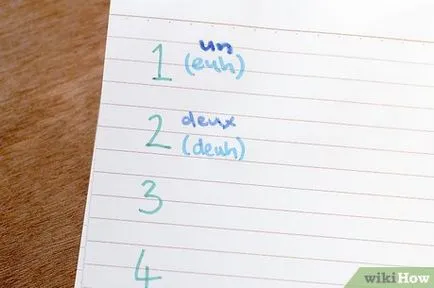 1 un
(euh)
2 deux
(deuh)
3
4
wikiHow